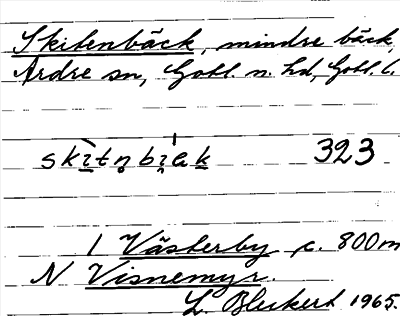 Skitenbäck, mindre bäck,
Ardre sn, Gotl. n. hd, Gotl. l.
skìtn̥bi̯ak 323
1 Västerby c. 800m
N Visnemyr.
L. Bleckert 1965.